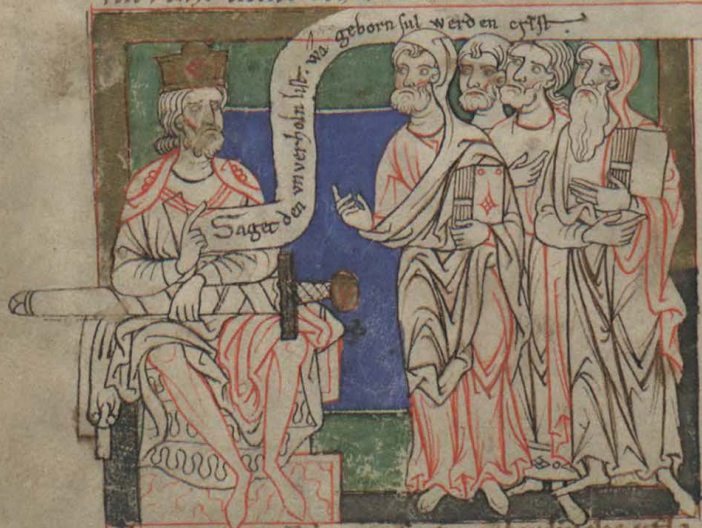 Saget den unverholn list. wa geborn sul werden crist.